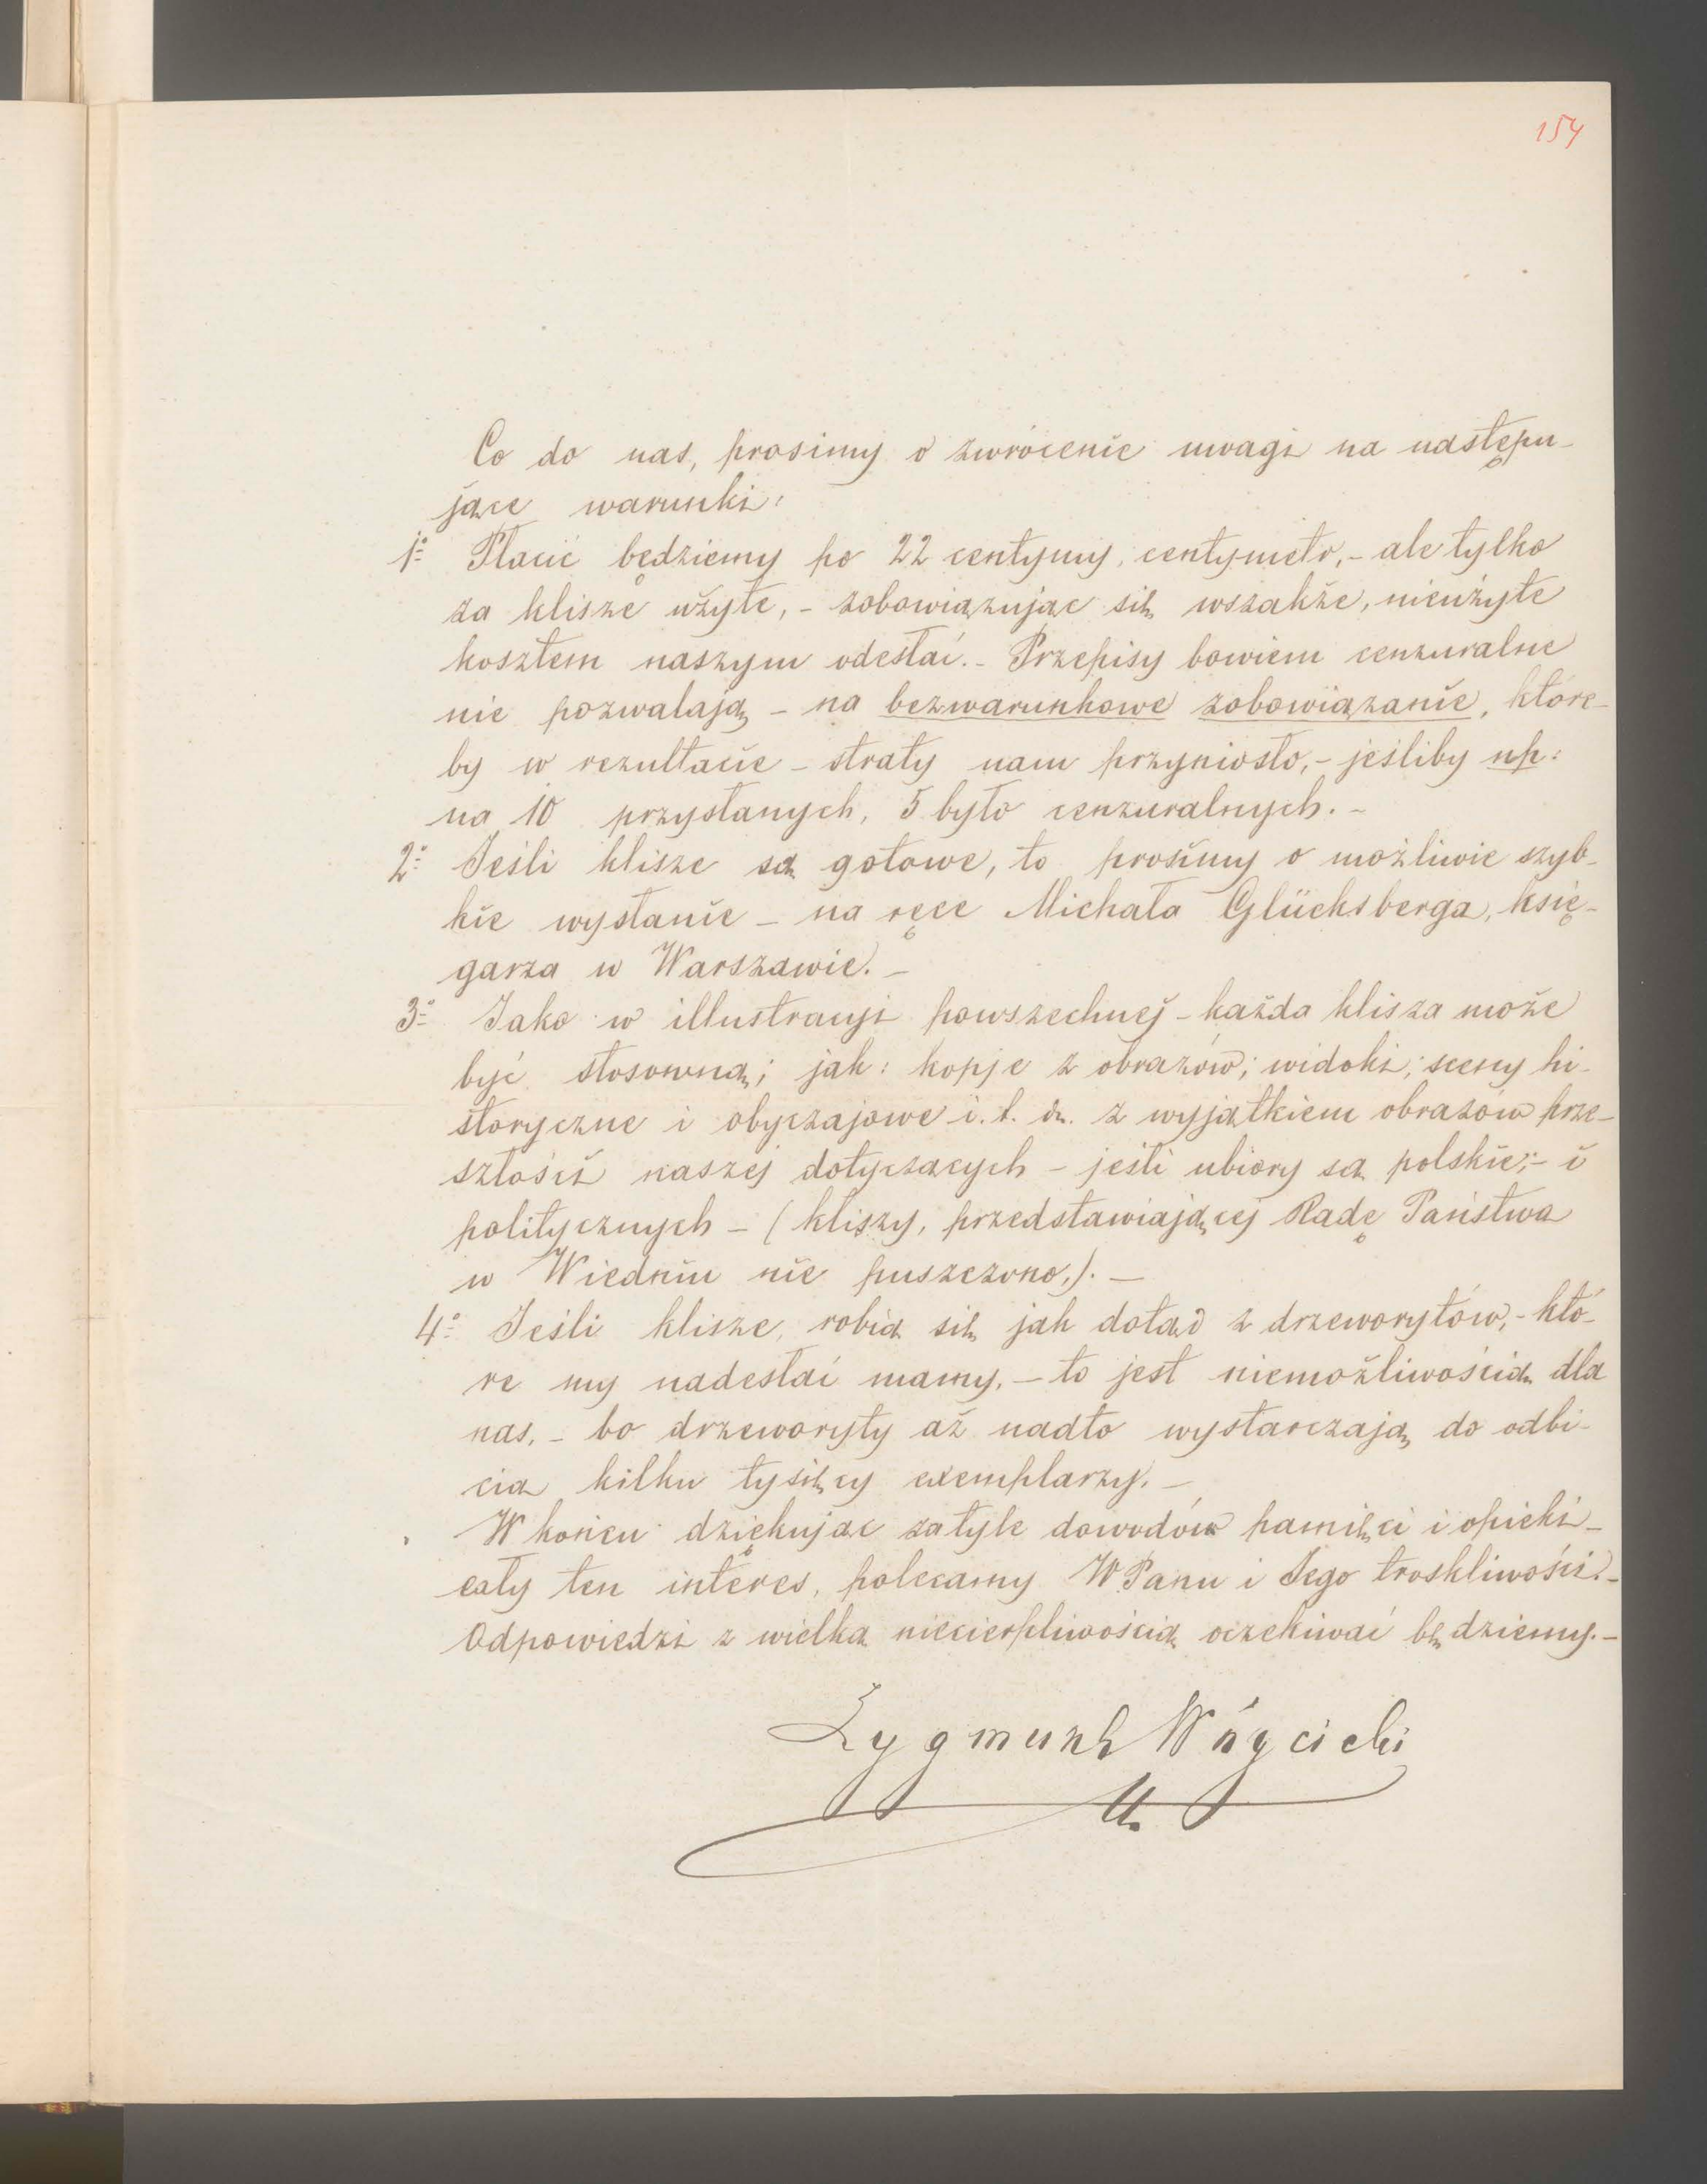 154
Co do nas, prosimy o zwrócenie uwagi na następu-
jące warunki:
1º Płacić będziemy po 22 centymy, centymetr, - ale tylko
za klisze użyte, - zobowiązując się wszakże, nieużyte
kosztem naszym odesłać. - Przepisy bowiem cenzuralne
nie pozwalają - na bezwarunkowe zobowiązanie, które-
by w rezultacie - straty nam przyniosło, - jeśliby np:
na 10 przysłanych, 5 było cenzuralnych. -
2º Jeśli klisze są gotowe, to prosimy o możliwie szyb-
kie wysłanie - na ręce Michała Glücksberga, księ-
garza w Warszawie. -
3º Jako w illustracyi powszechnej - każda klisza może
być stosowną; jak: kopje z obrazów; widoki; sceny hi-
storyczne i obyczajowe i. t. d. z wyjątkiem obrazów prze-
szłości naszej dotyczących - jeśli ubiory są polskie; - i
politycznych - (kliszy, przedstawiającej Radę Państwa
w Wiedniu nie puszczono,). -
4º Jeśli klisze, robią się jak dotąd z drzeworytów, - któ-
re my nadesłać mamy, - to jest niemożliwością dla
nas, - bo drzeworyty aż nadto wystarczają do odbi-
cia kilku tysięcy exemplarzy. -
W końcu dziękując za tyle dowodów pamięci i opieki -
cały ten interes, polecamy WPanu i Jego troskliwości. -
Odpowiedzi z wielką niecierpliwością oczekiwać będziemy. -
Zygmunt Wóycicki